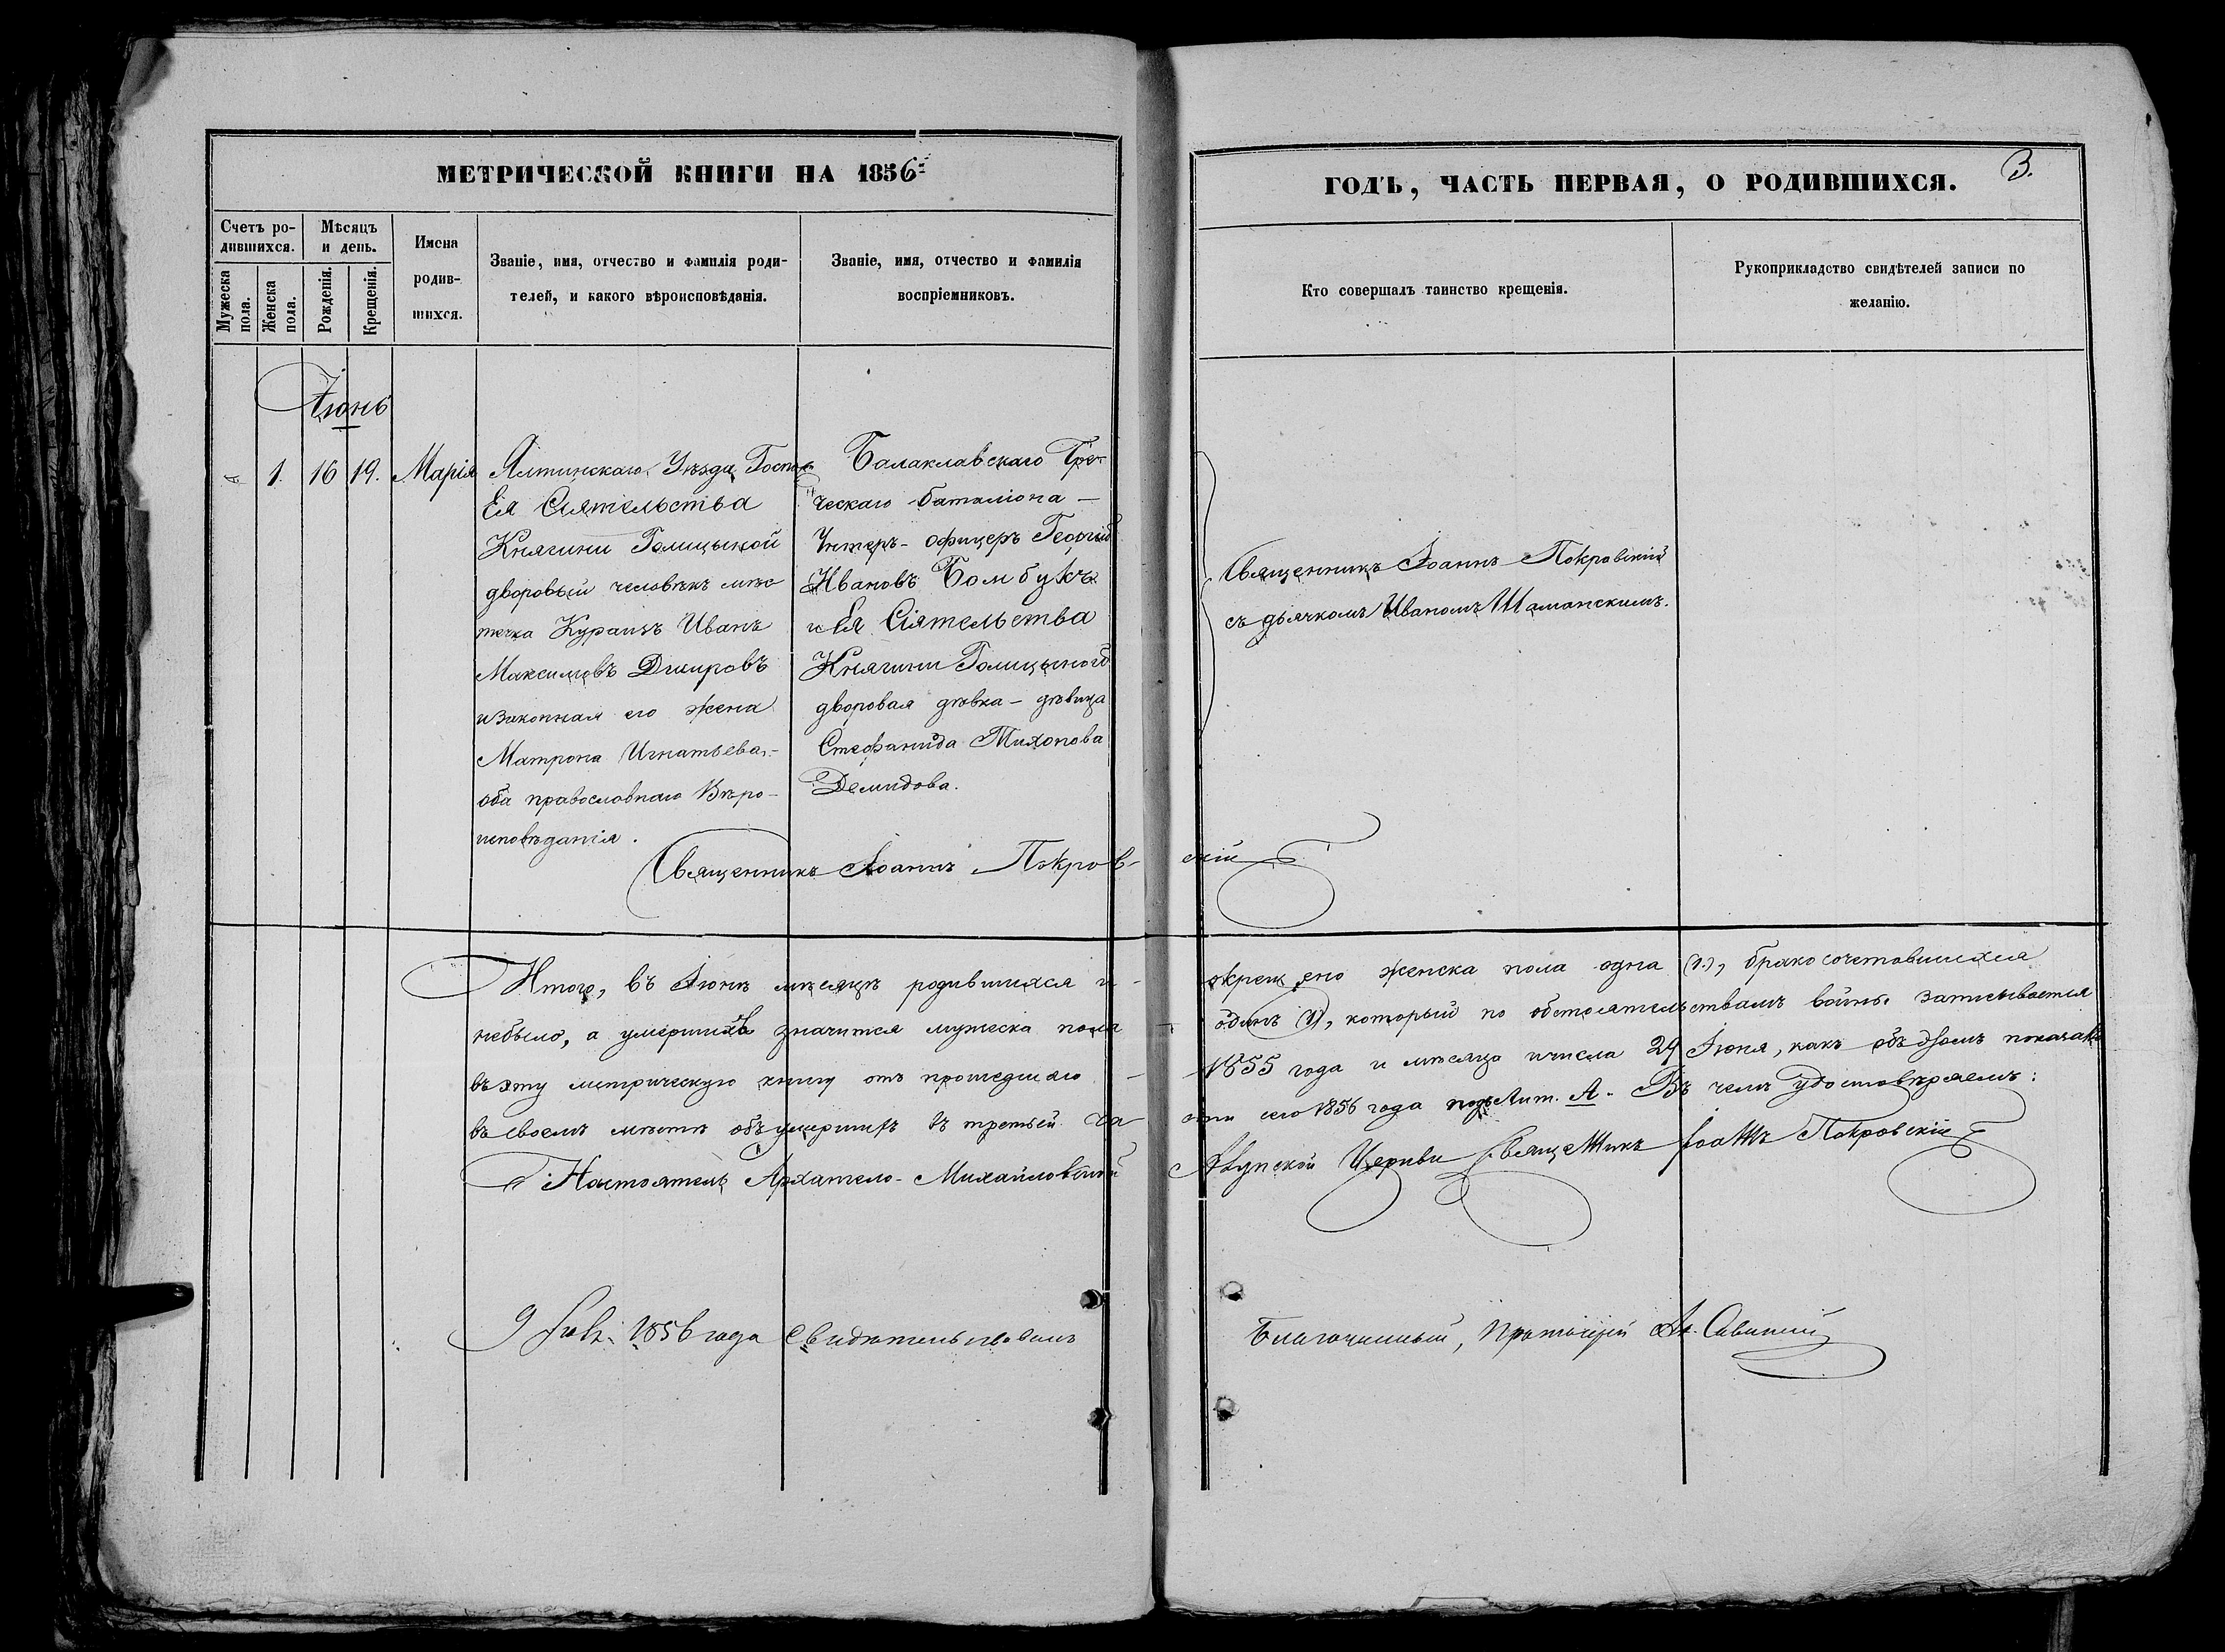 МЕТРИЧЕСКОЙ КНИГИ НА 1856й
Счетъ ро-
дившихся.
Мѣсяцъ
и день.
Мужеска
пола.
Женска
пола.
Рожденія.
Крещенія.
Имена
родив-
шихся.
Званіе, имя, отчество и фамилія роди-
телей, и какого вѣроисповѣданія.
Званіе, имя, отчество и фамилія
воспріемниковъ.
Іюнь
1. 16 19. Марія
Ялтинскаго Уѣзда
Ея Сіятельства
Княгини Голицыной
дворовый человѣкъ мѣс
течка Кураизъ Иванъ
Максимовъ
и законная его жена
Матрона Игнатьева,-
оба православнаго Вѣро-
исповѣданія.
Балаклавскаго Гре-
ческаго баталіона —
Унтеръ-офицеръ Георгій
Ивановъ
и Ея Сіятельства
Княгини Голицыной
дворовая дѣвка – дѣвица
Стефанида Тихонова
Демидова.
Священникъ Іоаннъ Покров-
Итого, въ Іюнѣ мѣсяцѣ родившихся и -
небыло, а умершихъ значится мужеска пола
въ эту метрическую книгу отъ прошедшаго -
въ своемъ мѣстѣ объ умершихъ въ третьей ча-
Настоятель Архангело-Михайловской
9 1856 года Свидѣтельствовалъ
ГОДЪ, ЧАСТЬ ПЕРВАЯ, О РОДИВШИХСЯ.
3.
Кто совершалъ таинство крещенія.
Рукоприкладство свидѣтелей записи по
желанію.
Священникъ Іоаннъ Покровскій
съ дьячкомъ Иваномъ Шаманскимъ.
скій
окрещено женска пола одна (1.), бракосочетавшихся
одинъ (1), который по обстоятельствамъ войны записывается
1855 года и мѣсяца и числа 24 Іюня, какъ объ показано
сти сего 1856 года подъ Лит. А. Въ чемъ удостовѣряемъ:
Церкви Священникъ Іоаннъ Покровскій
Благочинный, Протоіерей